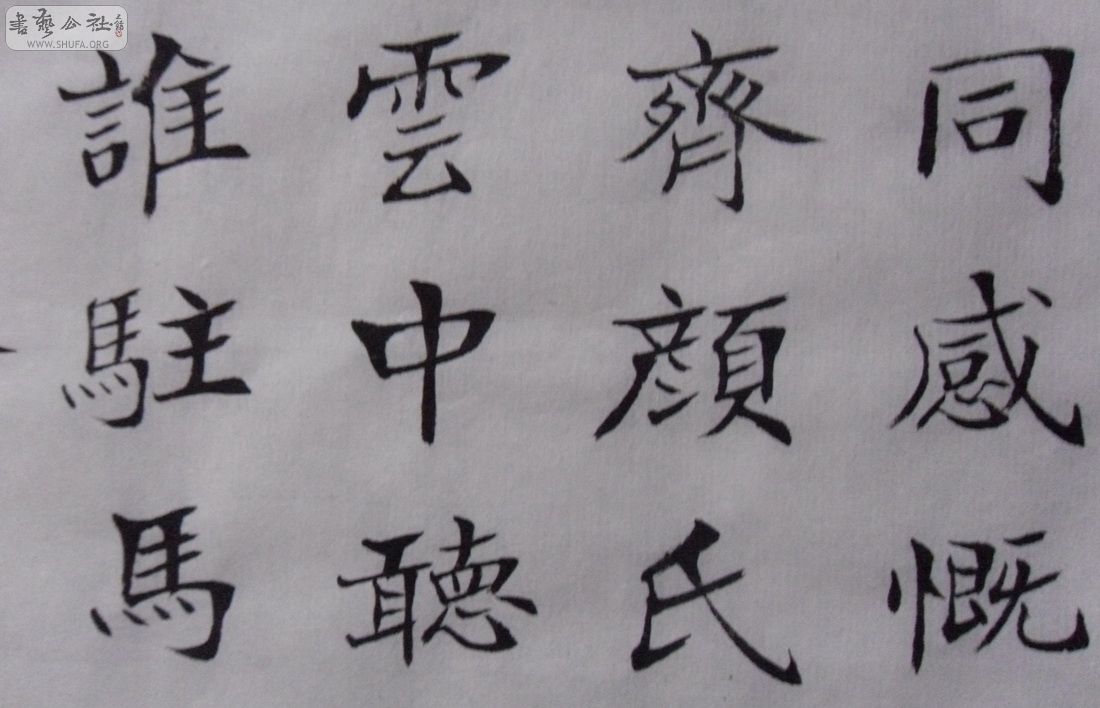 同感慨
齊顔氏
雲中聽
誰駐馬
書藝公社
WWW.SHUFA.ORG